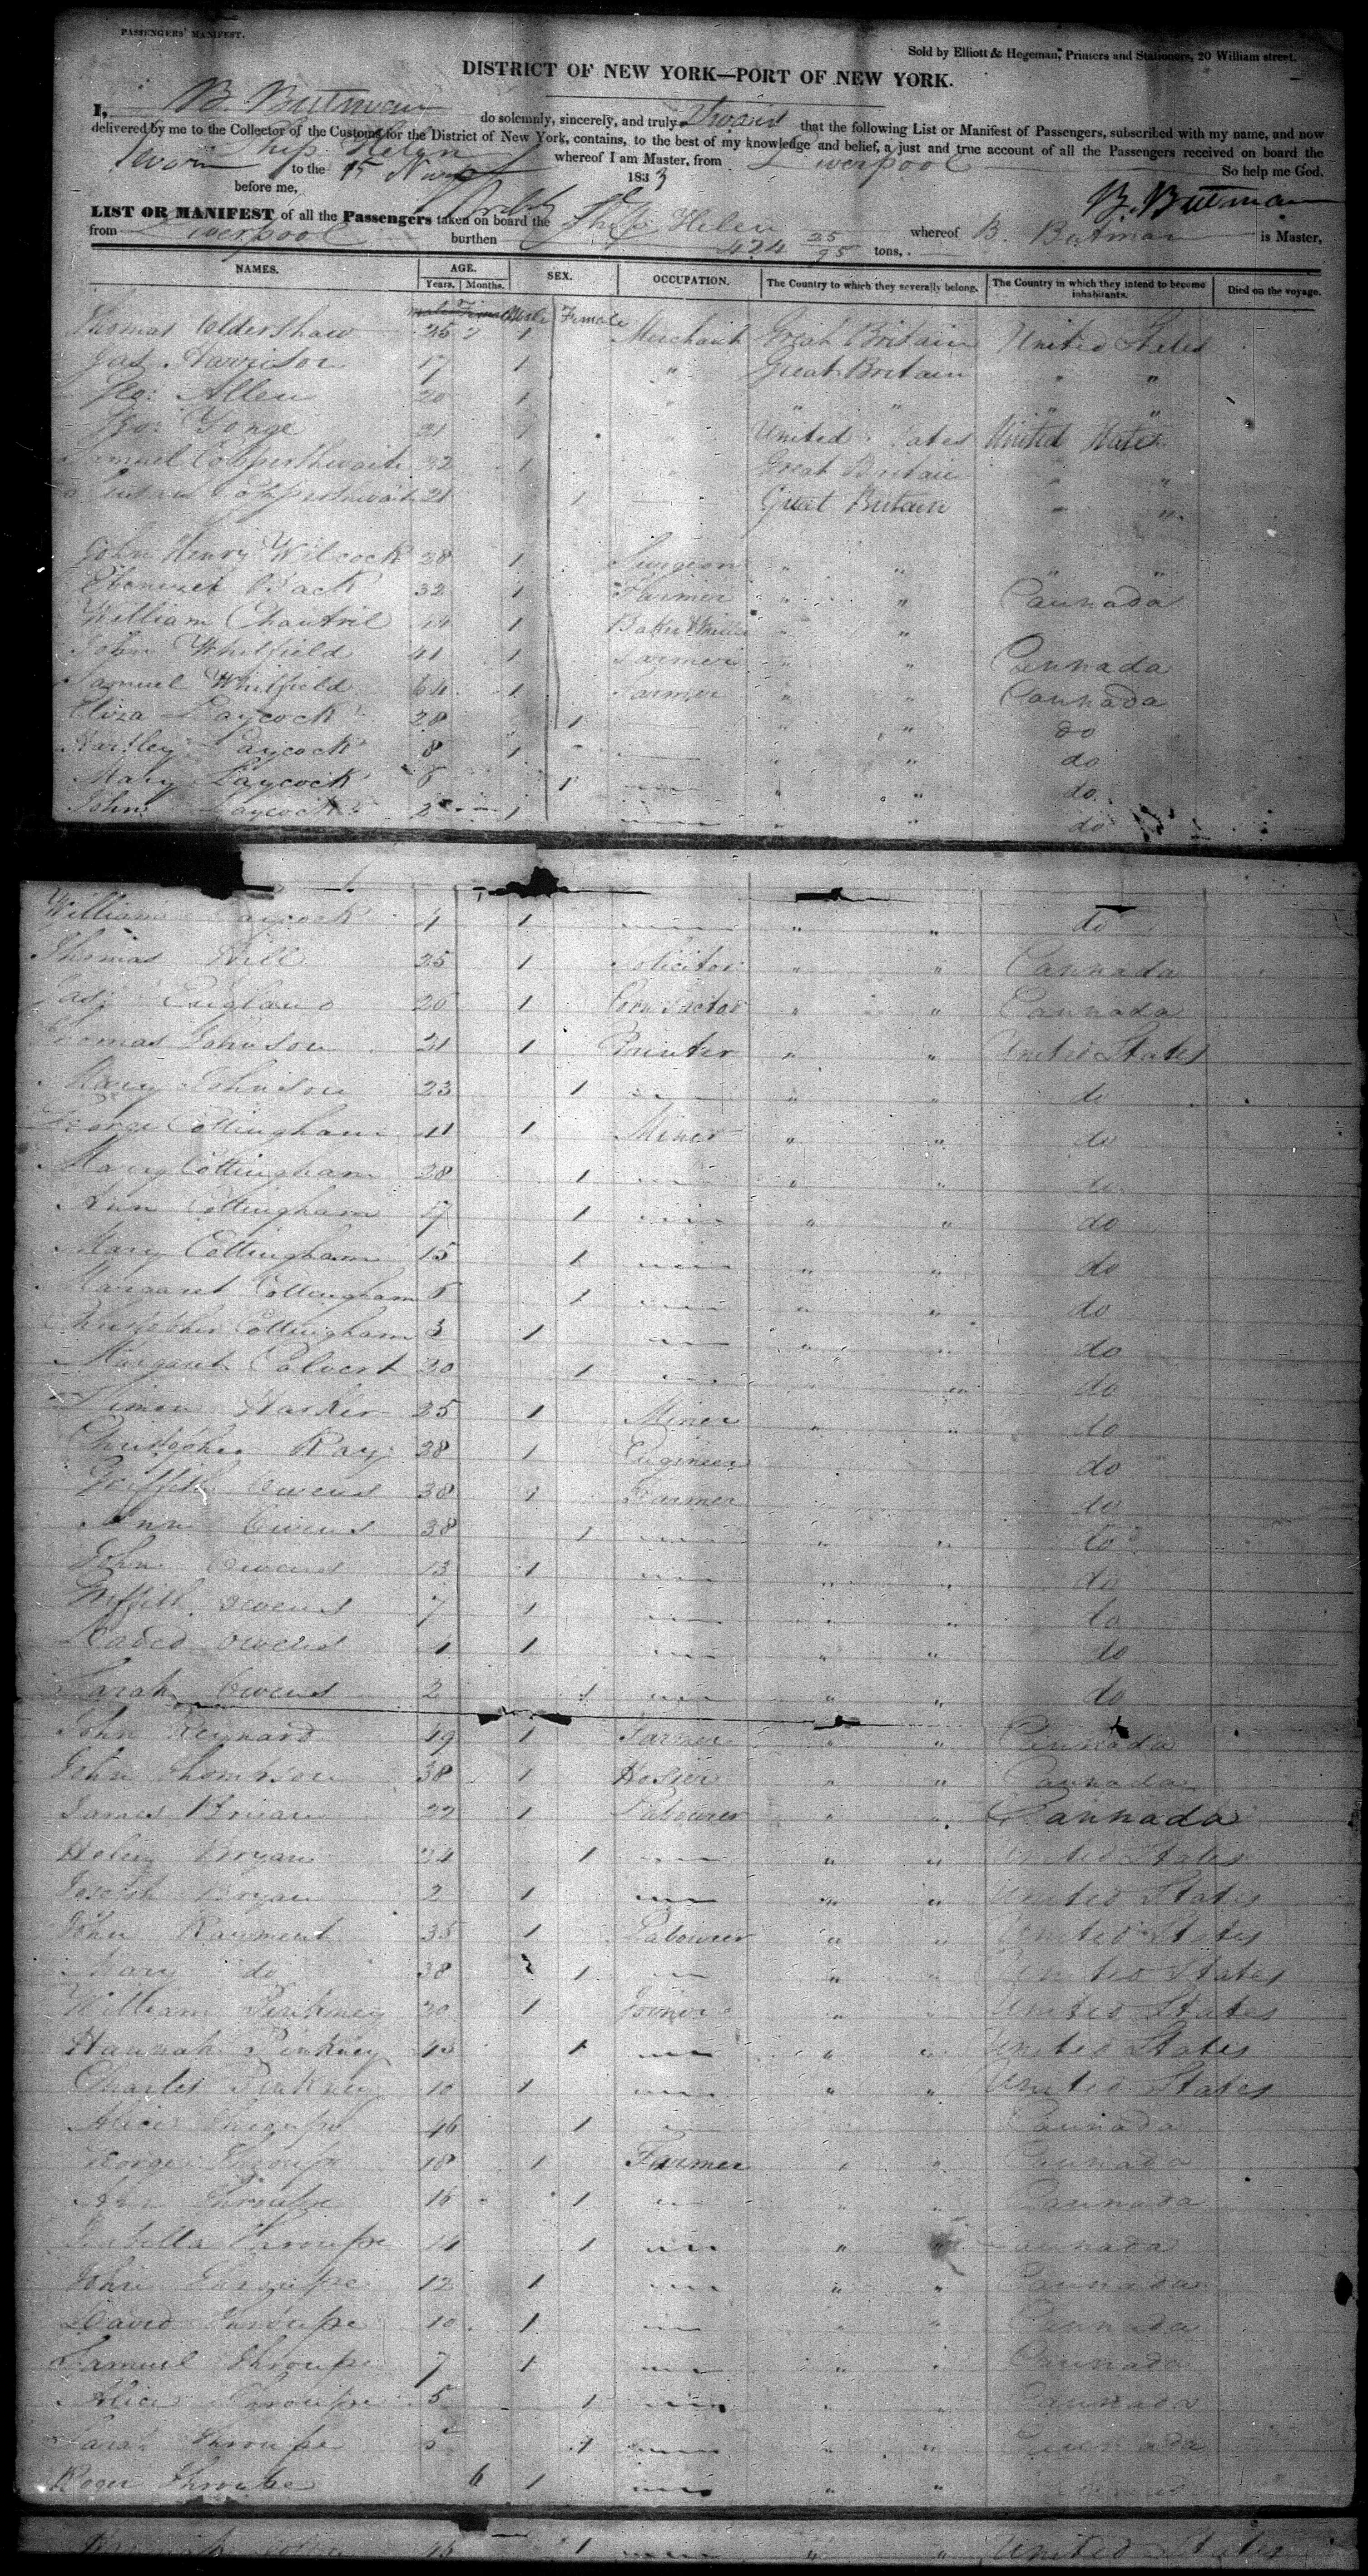 PASSENGERS' MANIFEST.
Sold by Elliott & Hegeman, Printers and Stationers, 20 William street.
DISTRICT OF NEW YORK—PORT OF NEW YORK.
I, B. Butman do solemnly, sincerely, and truly Swear that the following List or Manifest of Passengers, subscribed with my name, and now
delivered by me to the Collector of the Customs for the District of New York, contains, to the best of my knowledge and belief, a just and true account of all the Passengers received on board the
Ship Helen whereof I am Master, from Liverpool So help me God.
Sworn to the 15 1833
before me, B. Butman
LIST OR MANIFEST of all the Passengers taken on board the Ship Helen whereof B. Butman is Master,
from Liverpool burthen 424 25/95 tons,
NAMES. AGE. SEX. OCCUPATION. The Country to which they severally belong. The Country in which they intend to become inhabitants. Died on the voyage.
Years. Months. Male Female
Thomas Oldershaw 25 1 Merchant Great Britain United States
Jas Harrison 17 1 " Great Britain " "
Geo: Allen 20 1 " " " " "
Geo: Yonge 21 1 " United States United States
Samuel Copperthwaite 32 1 " Great Britain " "
Copperthwaite 21 1 Great Britain " "
John Henry Wilcock 28 1 Surgeon " " " "
Ebenezer Back 32 1 Farmer " " Cannada
William Chantril 44 1 Baker & Miller " "
John Whitfield 41 1 Farmer " " Cannada
Samuel Whitfield 64 1 Farmer " " Cannada
Eliza Laycock 28 1 " " do
Hartley Laycock 8 1 " " do
Mary Laycock 6 1 " " do
John Laycock 2 1 " " do
William Laycock 4 1 " " do
Thomas Hill 25 1 Solicitor " " Cannada
Jas England 20 1 Corn Factor " " Cannada
Thomas Johnson 21 1 " " United States
Mary Johnson 23 1 " " do
George Cottingham 41 1 Miner " " do
Mary Cottingham 38 1 " " do
Ann Cottingham 17 1 " " do
Mary Cottingham 15 1 " " do
Margaret Cottingham 5 1 " " do
Christopher Cottingham 3 1 " " do
Margaret Calvert 20 1 " " do
Simon Harker 25 1 Miner " " do
Christopher Ray 28 1 Engineer do
Griffith Owens 38 1 Farmer do
Ann Owens 38 1 " " do
John Owens 13 1 " " do
Griffith Owens 7 1 " " do
David Owens 4 1 " " do
Sarah Owens 2 1 " " do
John Reynard 49 1 Farmer " " Cannada
John Thompson 38 1 Hosier " " Cannada
James 22 1 Labourer " " Cannada
Bryan 24 1 " " United States
Joseph Bryan 2 1 " " United States
John Rayment 35 1 Labourer " " United States
Mary do 38 1 " " United States
William Pinkney 20 1 Joiner " " United States
Hannah Pinkney 13 1 " " United States
Charles Pinkney 10 1 " " United States
Alice Throupe 46 1 Cannada
George Throupe 18 1 Farmer " " Cannada
Ann Throupe 16 1 " " Cannada
Isabella Throupe 14 1 " " Cannada
John Throupe 12 1 " " Cannada
David Throupe 10 1 " " Cannada
Samuel Throupe 7 1 " " Cannada
Alice Throupe 5 1 " " Cannada
Sarah Throupe 5 1 " " Cannada
Roger Throupe 6 1 " "
1 " " United States